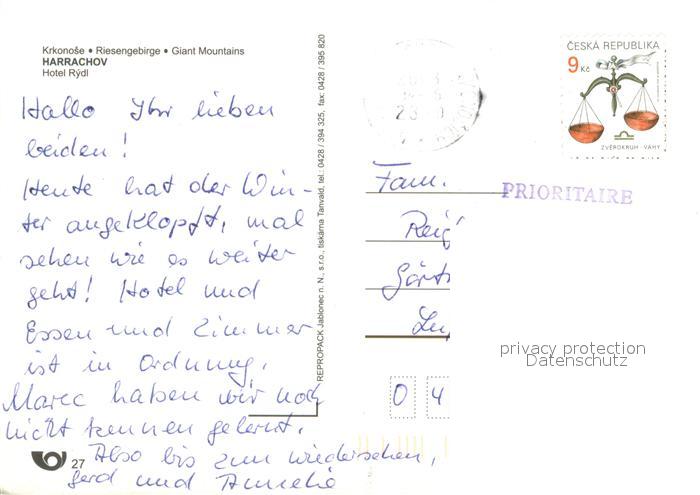 Krkonoše • Riesengebirge • Giant Mountains
HARRACHOV
Hotel Rýdl
Hallo Ihr lieben
beiden!
Heute hat der Win-
ter angeklopft, mal
sehen wie es weiter
geht! Hotel und
Essen und Zimmer
ist in Ordnung.
Marec haben wir noch
nicht kennen gelernt.
Also bis zum wiedersehen,
Gerd und
27
REPROPACK Jablonec n. N., s.r.o., tiskárna Tanvald, tel.: 0428 / 394 325, fax: 0428 / 395 820
ČESKÁ REPUBLIKA
9 Kč
ZVĚROKRUH - VÁHY
PRIORITAIRE
Fam.
privacy protection
Datenschutz
0 4